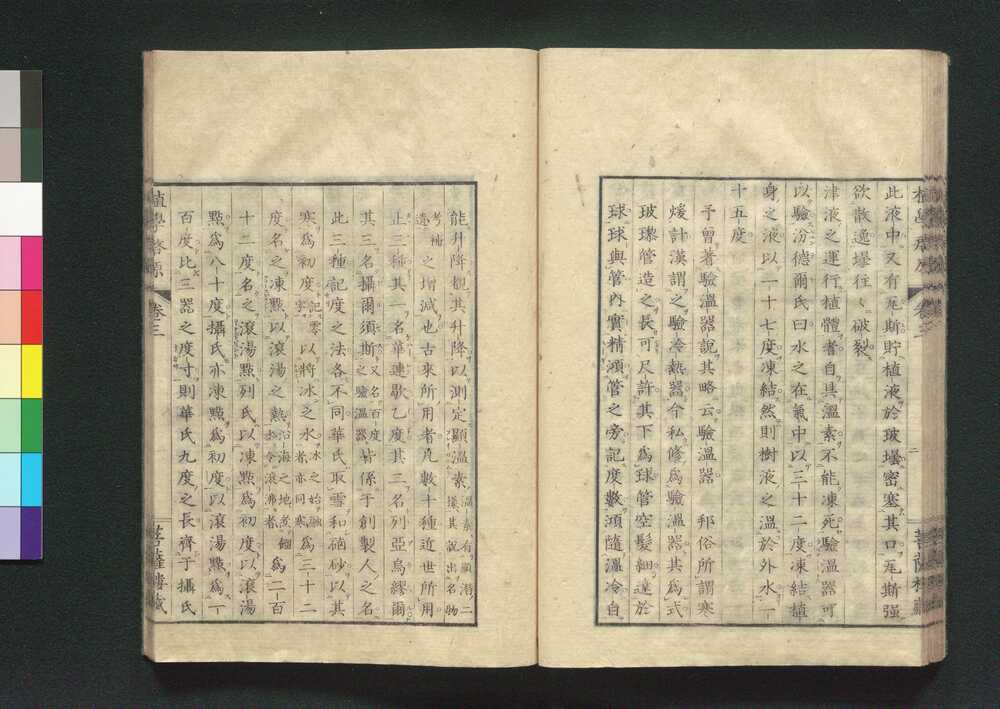 此液中又有瓦斯貯植液於玻壜密塞其口瓦斯强
欲散逸壜往々破裂
津液之運行植體者自具溫素不能凍死驗溫器可
以驗汾德爾氏曰水之在氣中以三十二度凍結植
身之液以一十七度凍結然則樹液之溫於外水一
十五度
予曾著驗溫器說其略云驗溫器 邦俗所謂寒
煖計漢謂之驗冷熱器今私修為驗溫器其為式
玻瓈管造之長可尺許其下為球管空髮細達於
球球與管內實精澒管之旁記度數澒隨溫冷自
植學啓原 卷三 菩薩樓藏
能升降觀其升降以測定顯溫素溫素有顯潛二樣其說出名物
考補遺之增減也古來所用者凡數十種近世所用
止三種其一名華連歇乙度其三名列亞烏繆爾
其三名攝爾須斯又名百度之驗溫器皆係于創製人之名
此三種記度之法各不同華氏取雪和硇砂以其
寒為初度記零字以將冰之水冰之始融者亦同寒為三十二
度名之凍點以滾湯之熱沿海之地煮餾水令滾沸者為二百
十二度名之滾湯點列氏以凍點為初度以滾湯
點為八十度攝氏亦凍點為初度以滾湯點為一
百度比三器之度寸則華氏九度之長齊于攝氏
植學啓原 卷三 菩薩樓藏